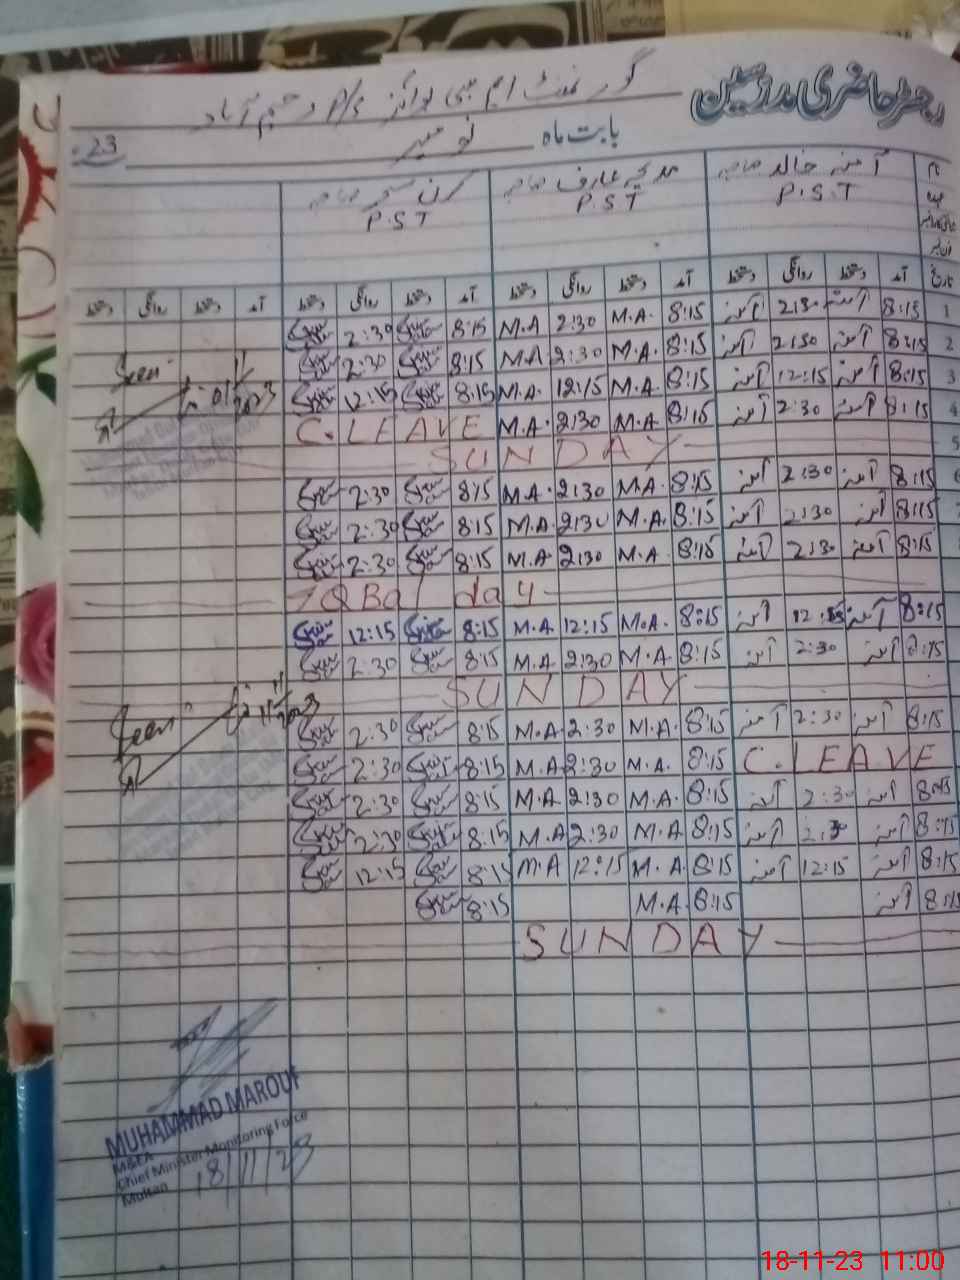 رجسٹر حاضری مدرسین
گورنمنٹ ایم سی بوائز P/S رحیم آباد
بابت ماہ نومبر 23
نام آمنہ خالد صاحبہ مدیحہ عارف صاحبہ کرن صاحبہ
عہدہ P.S.T P.S.T P.S.T
تاریخ آمد دستخط روانگی دستخط آمد دستخط روانگی دستخط آمد دستخط روانگی دستخط آمد دستخط روانگی دستخط
1 8:15 آمنہ 2:30 آمنہ 8:15 M.A. 2:30 M.A 8:15 2:30
2 8:15 آمنہ 2:30 آمنہ 8:15 M.A. 2:30 M.A 8:15 2:30
3 8:15 آمنہ 12:15 آمنہ 8:15 M.A. 12:15 M.A. 8:15 12:15
4 8:15 آمنہ 2:30 آمنہ 8:15 M.A. 2:30 M.A. C.LEAVE
5 SUNDAY
6 8:15 آمنہ 2:30 آمنہ 8:15 M.A. 2:30 M.A. 8:15 2:30
7 8:15 آمنہ 2:30 آمنہ 8:15 M.A. 2:30 M.A. 8:15 2:30
8:15 آمنہ 2:30 آمنہ 8:15 M.A. 2:30 M.A. 8:15 2:30
IQBal day
8:15 آمنہ 12:15 آمنہ 8:15 M.A. 12:15 M.A 8:15 12:15
8:15 آمنہ 2:30 آمنہ 8:15 M.A 2:30 M.A. 8:15 2:30
SUNDAY
8:15 آمنہ 2:30 آمنہ 8:15 M.A. 2:30 M.A. 8:15 2:30
C.LEAVE 8:15 M.A. 2:30 M.A 8:15 2:30
8:15 آمنہ 2:30 آمنہ 8:15 M.A. 2:30 M.A 8:15 2:30
8:15 آمنہ 2:30 آمنہ 8:15 M.A 2:30 M.A 8:15 2:30
8:15 آمنہ 12:15 آمنہ 8:15 M.A. 12:15 M.A 8:15 12:15
8:15 آمنہ 8:15 M.A. 8:15
SUNDAY
Seen
Seen
MUHAMMAD MAROUF
M&EA
Chief Minister Monitoring Force
Multan 18/11/23
18-11-23 11:00